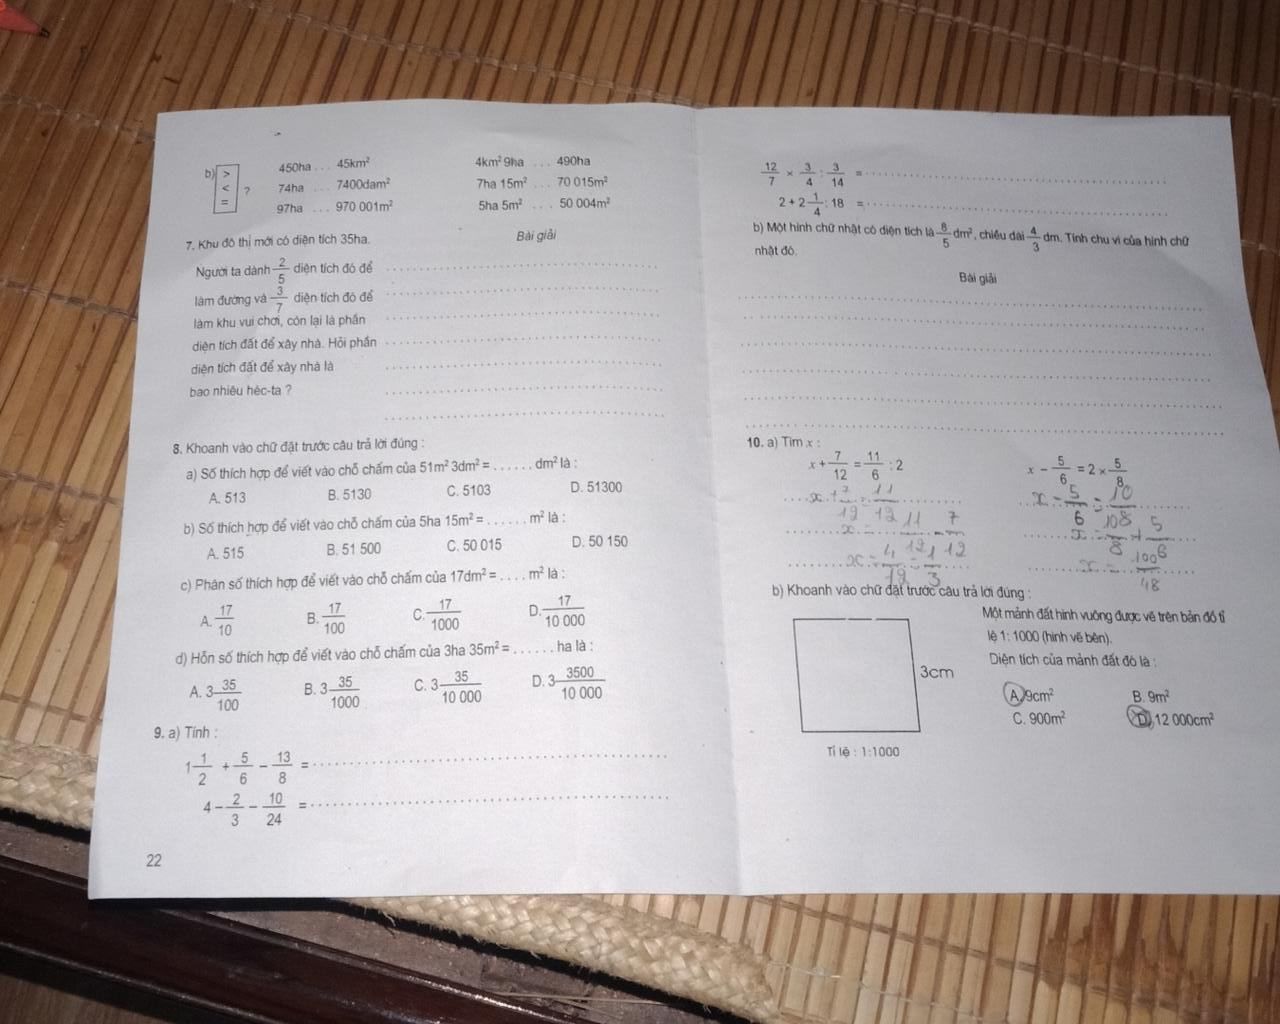 b) > < = ?
450ha ... 45km²
4km² 9ha ... 490ha
74ha ... 7400dam²
7ha 15m² ... 70 015m²
97ha ... 970 001m²
5ha 5m² ... 50 004m²
7. Khu đô thị mới có diện tích 35ha.
Người ta dành 2/5 diện tích đó để
làm đường và 3/7 diện tích đó để
làm khu vui chơi, còn lại là phần
diện tích đất để xây nhà. Hỏi phần
diện tích đất để xây nhà là
bao nhiêu héc-ta ?
Bài giải
8. Khoanh vào chữ đặt trước câu trả lời đúng :
a) Số thích hợp để viết vào chỗ chấm của 51m² 3dm² = ...... dm² là :
A. 513 B. 5130 C. 5103 D. 51300
b) Số thích hợp để viết vào chỗ chấm của 5ha 15m² = ...... m² là :
A. 515 B. 51 500 C. 50 015 D. 50 150
c) Phân số thích hợp để viết vào chỗ chấm của 17dm² = .... m² là :
A. 17/10 B. 17/100 C. 17/1000 D. 17/10 000
d) Hỗn số thích hợp để viết vào chỗ chấm của 3ha 35m² = ...... ha là :
A. 3 35/100 B. 3 35/1000 C. 3 35/10 000 D. 3 3500/10 000
9. a) Tính :
1 1/2 + 5/6 - 13/8 =
4 - 2/3 - 10/24 =
22
12/7 × 3/4 : 3/14 =
2 + 2 1/4 : 18 =
b) Một hình chữ nhật có diện tích là 8/5 dm², chiều dài 4/3 dm. Tính chu vi của hình chữ
nhật đó.
Bài giải
10. a) Tìm x :
x + 7/12 = 11/6 : 2
x + 7/12 = 11/12
x = 11/12 - 7/12
x = 4/12 = 1/3
x - 5/6 = 2 × 5/8
x - 5/6 = 10/8
x = 10/8 + 5/6
x = 100/48
b) Khoanh vào chữ đặt trước câu trả lời đúng :
Một mảnh đất hình vuông được vẽ trên bản đồ tỉ
lệ 1: 1000 (hình vẽ bên).
Diện tích của mảnh đất đó là :
3cm
A. 9cm² B. 9m²
C. 900m² D. 12 000cm²
Tỉ lệ : 1:1000